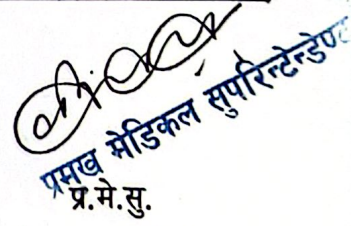 प्रमख मेडिकल सुपरिन्टेन्डेण्ट
प्र.मे.सु.